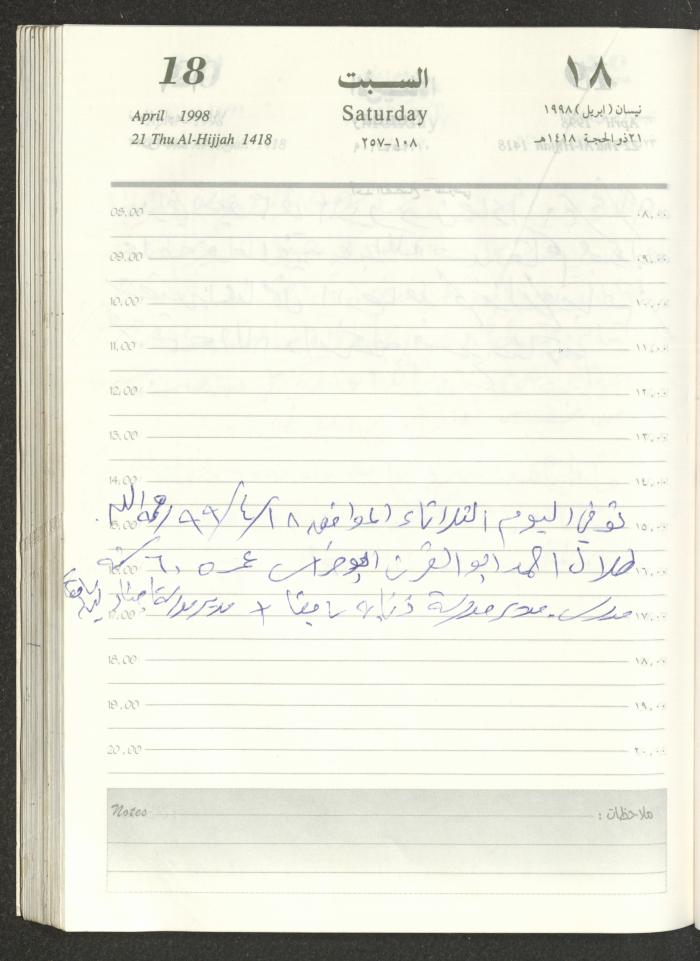 18 السبت ١٨
April 1998 Saturday نيسان (ابريل) ١٩٩٨
21 Thu Al-Hijjah 1418 ١٠٨-٢٥٧ ٢١ ذو الحجة ١٤١٨هـ
08.00 ٠٨.٠٠
09.00 ٠٩.٠٠
10.00 ١٠.٠٠
11.00 ١١.٠٠
12.00 ١٢.٠٠
13.00 ١٣.٠٠
14.00 ١٤.٠٠
توفي اليوم الثلاثاء الموافق ١٨/٤/٩٩ رحمه الله
15.00 ١٥.٠٠
طلال احمد ابو القرن عمره ٦٠ سنة
16.00 ١٦.٠٠
مدرس. مدير مدرسة ذنابه سابقا + مدير مدرسة سابقا
17.00 ١٧.٠٠
18.00 ١٨.٠٠
19.00 ١٩.٠٠
20.00 ٢٠.٠٠
Notes ملاحظات :